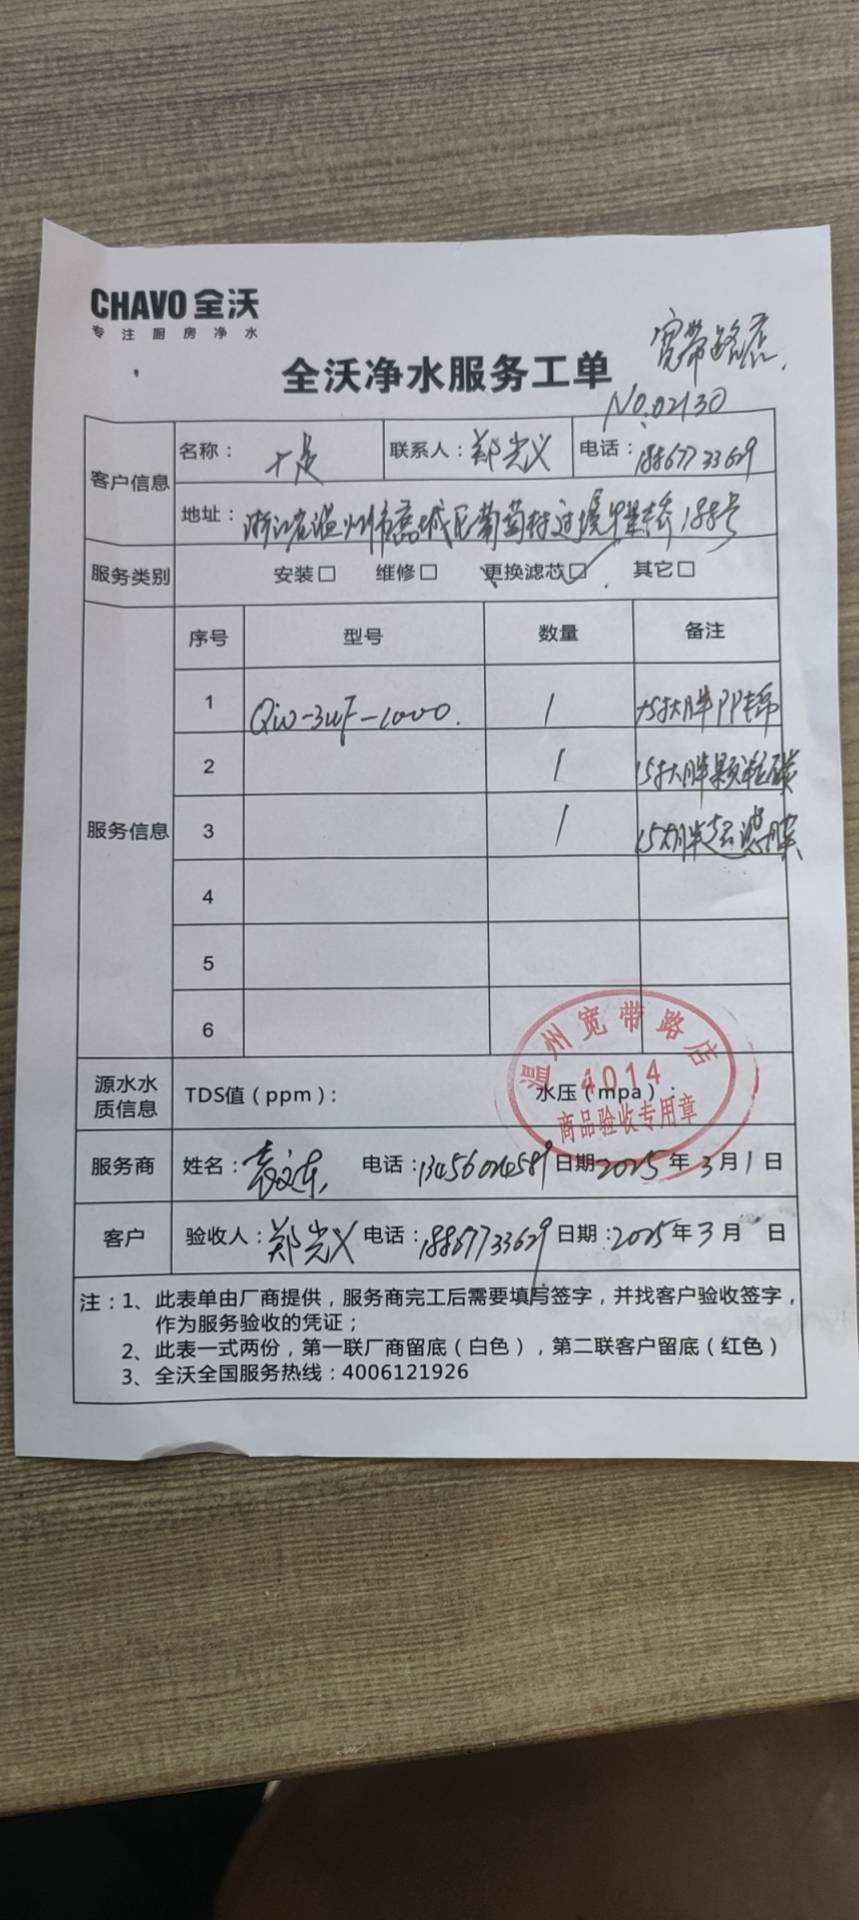 CHAVO 全沃
专注厨房净水
宽带路店
全沃净水服务工单
No.02130
客户信息 名称： 联系人：郑光义 电话：18867733629
地址：浙江省温州市鹿城区葡萄村过境 188号
服务类别 安装□ 维修□ 更换滤芯□ 其它□
服务信息 序号 型号 数量 备注
1 QW-3UF-1000. 1 大胖PP棉
2 1 15寸大胖颗粒碳
3 1 15大胖超滤膜
4
5
6
源水水质信息 TDS值（ppm）： 水压（mpa）：
温州宽带路店
4014
商品验收专用章
服务商 姓名： 电话：13456024589 日期2025年3月1日
客户 验收人：郑光义 电话：18867733629 日期：2025年3月 日
注：1、此表单由厂商提供，服务商完工后需要填写签字，并找客户验收签字，
作为服务验收的凭证；
2、此表一式两份，第一联厂商留底（白色），第二联客户留底（红色）
3、全沃全国服务热线：4006121926